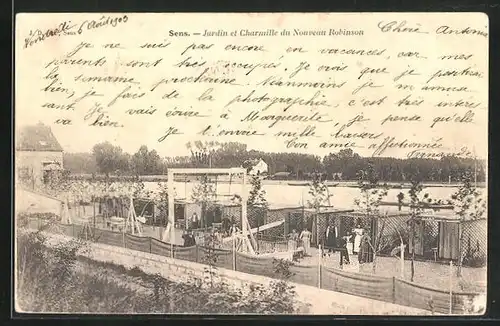 Sens. — Jardin et Charmille du Nouveau Robinson
Vendredi 6 Août 1903
Chère Antonia
Je ne suis pas encore en vacances, car mes
parents sont très occupés. Je crois que je partirai
la semaine prochaine. Néanmoins je m'amuse
bien, je fais de la photographie, c'est très intéres
sant. Je vais écrire à Marguerite, je pense qu'elle
va bien. Je t'envoie mille baisers
Ton amie affectionnée